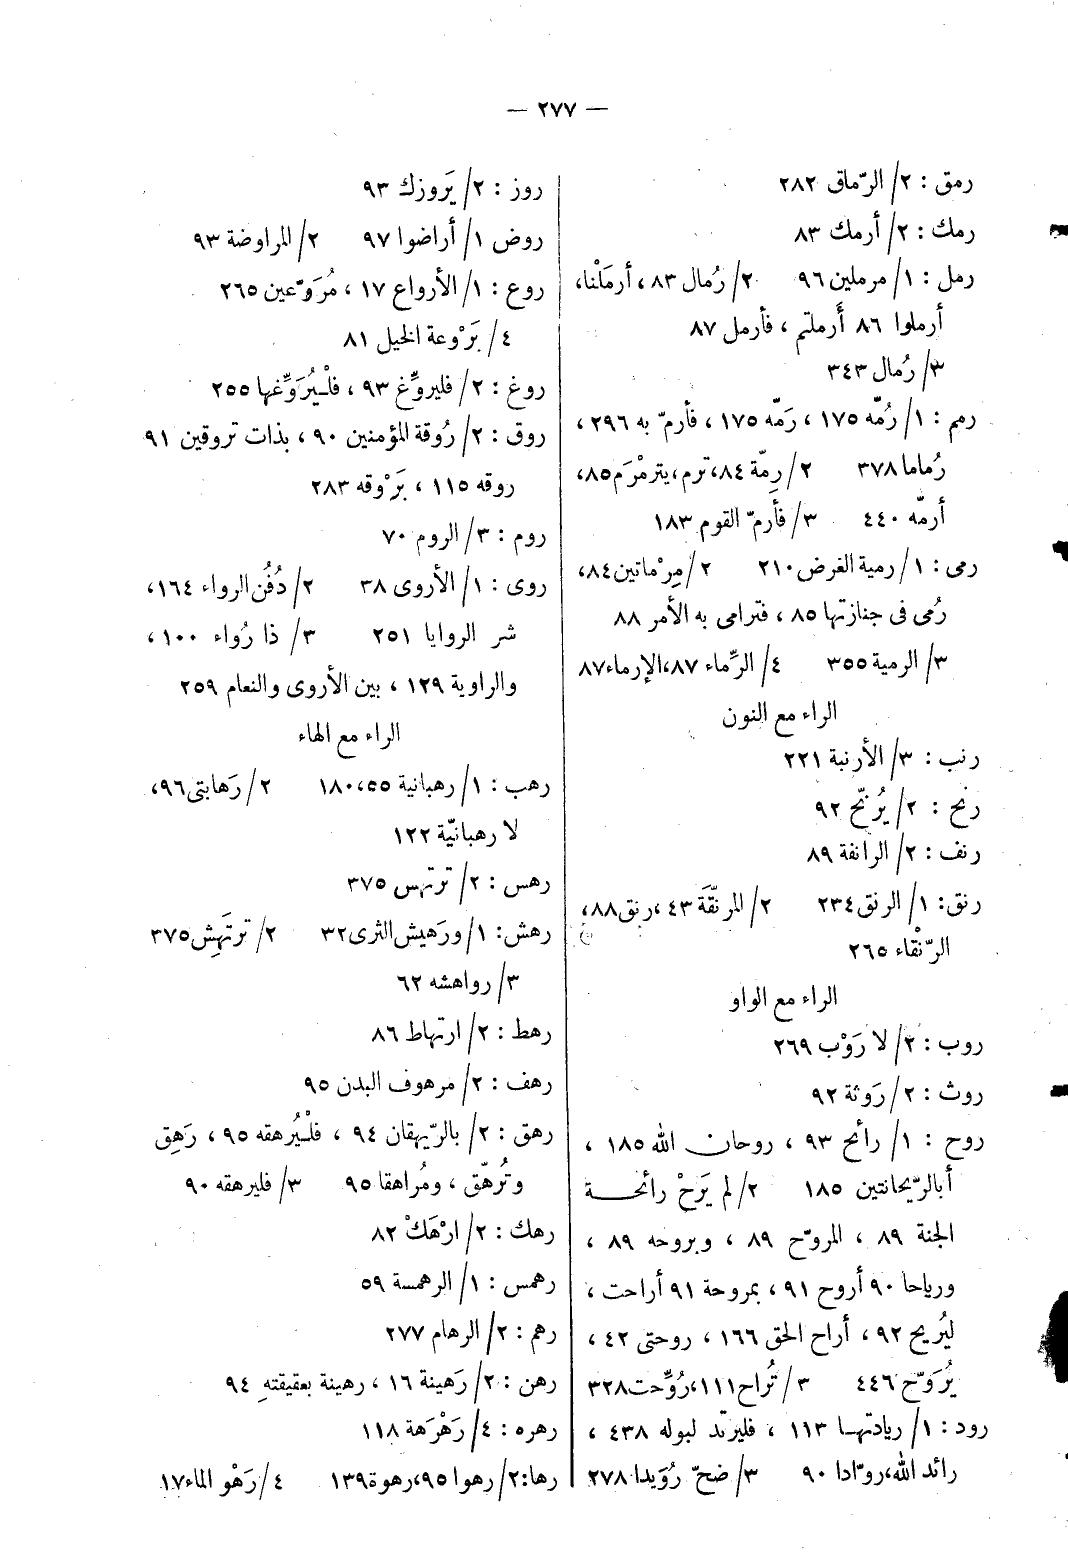 — ٢٧٧ —
رمق : ٢/ الرّماق ٢٨٢
رمك : ٢/ أرمك ٨٣
رمل : ١/ مرملين ٩٦ ٢/ رُمال ٨٣ ، أرمَلْنا،
أرملوا ٨٦ أَرملتم ، فأرمل ٨٧
٣/ رُمال ٣٤٣
رمم : ١/ رُمّه ١٧٥ ، رَمّه ١٧٥ ، فأرمّ به ٢٩٦ ،
رُماما ٣٧٨ ٢/ رِمّة ٨٤، ترم، يترمْرَم ٨٥،
أرمّه ٤٤٠ ٣/ فأرمّ القوم ١٨٣
رمى : ١/ رمية الغرض ٢١٠ ٢/ مِرْماتين ٨٤،
رُمى فى جنازتها ٨٥ ، فترامى به الأمر ٨٨
٣/ الرمية ٣٥٥ ٤/ الرِّماء ٨٧، الإرماء ٨٧
الراء مع النون
رنب : ٣/ الأرنبة ٢٢١
رنح : ٢/ يُرنّح ٩٢
رنف : ٢/ الرانفة ٨٩
رنق: ١/ الرنق ٢٣٤ ٢/ المرنّقَة ٤٣ ، رنق ٨٨،
الرّنْقاء ٢٦٥
الراء مع الواو
روب : ٢/ لا رَوْب ٢٦٩
روث : ٢/ رَوثة ٩٢
روح : ١/ رائح ٩٣ ، روحان الله ١٨٥ ،
أبالرّيحانتين ١٨٥ ٢/ لم يَرَحْ رائحـــة
الجنة ٨٩ ، المروّح ٨٩ ، وبروحه ٨٩ ،
ورياحا ٩٠ أروح ٩١ ، بمروحة ٩١ أراحت ،
ليُريح ٩٢ ، أراح الحق ١٦٦ ، روحتى ٤٢ ،
يُرَوّح ٤٤٦ ٣/ تُراح ١١١، رُوِّحت ٣٢٨
رود : ١/ ريادتهـا ١١٣ ، فليرتد لبوله ٤٣٨ ،
رائد الله، روّادا ٩٠ ٣/ ضحّ رُوَيدا ٢٧٨
روز : ٢/ يَروزك ٩٣
روض ١/ أراضوا ٩٧ ٢/ المراوضة ٩٣
روع : ١/ الأرواع ١٧ ، مُرَوّعين ٢٦٥
٤/ بَرَوْعة الخيل ٨١
روغ : ٢/ فليروِّغ ٩٣ ، فلْيُرَوِّغها ٢٥٥
روق : ٢/ رُوقة المؤمنين ٩٠ ، بذات تروقين ٩١
روقه ١١٥ ، بَرَوْقه ٢٨٣
روم : ٣/ الروم ٧٠
روى : ١/ الأروى ٣٨ ٢/ دُفُن الرواء ١٦٤،
شر الروايا ٢٥١ ٣/ ذا رُواء ١٠٠ ،
والراوية ١٢٩ ، بين الأروى والنعام ٢٥٩
الراء مع الهاء
رهب : ١/ رهبانية ٥٥، ١٨٠ ٢/ رَهابتى ٩٦،
لا رهبانيّة ١٢٢
رهس : ٢/ ترتهس ٣٧٥
رهش: ١/ ورَهيش الثرى ٣٢ ٢/ ترتَهِش ٣٧٥
٣/ رواهشه ٦٢
رهط : ٢/ ارتهاط ٨٦
رهف : ٢/ مرهوف البدن ٩٥
رهق : ٢/ بالرّيهقان ٩٤ ، فلْيُرهقه ٩٥ ، رَهِق
وتُرهّق ، ومُراهقا ٩٥ ٣/ فليرهقه ٩٠
رهك : ٢/ ارْهَكْ ٨٢
رهمس : ١/ الرهمسة ٥٩
رهم : ٢/ الرهام ٢٧٧
رهن : ٢/ رَهينة ١٦ ، رهينة بعقيقتهِ ٩٤
رهره : ٤/ رَهْرَهة ١١٨
رها: ٢/ رهوا ٩٥، رهوة ١٣٩ ٤/ رَهْو الماء ١٧